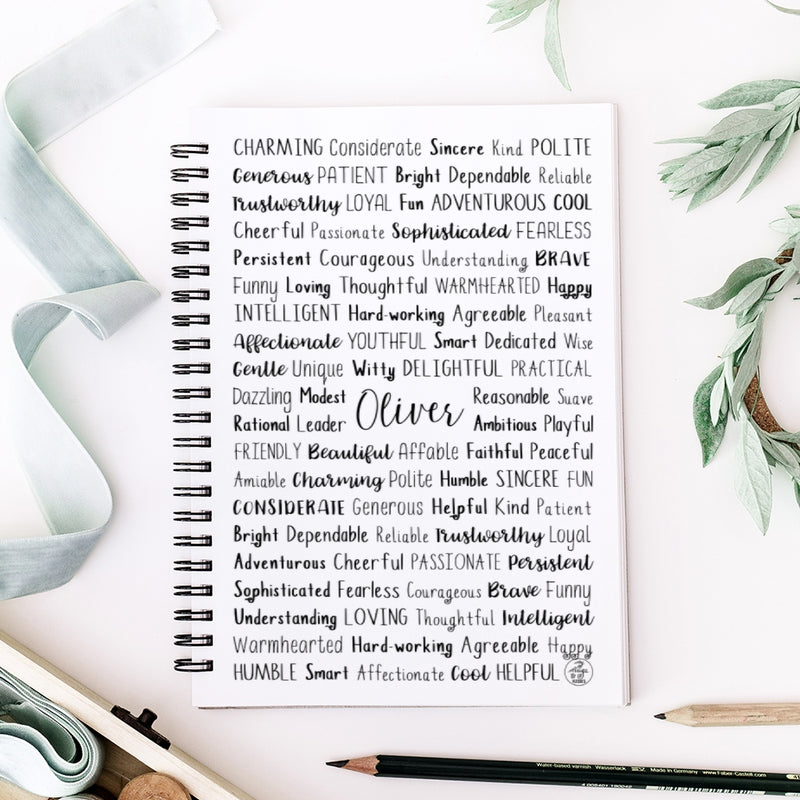 CHARMING Considerate Sincere Kind POLITE
Generous PATIENT Bright Dependable Reliable
Trustworthy LOYAL Fun ADVENTUROUS COOL
Cheerful Passionate Sophisticated FEARLESS
Persistent Courageous Understanding BRAVE
Funny Loving Thoughtful WARMHEARTED Happy
INTELLIGENT Hard-working Agreeable Pleasant
Affectionate YOUTHFUL Smart Dedicated Wise
Gentle Unique Witty DELIGHTFUL PRACTICAL
Dazzling Modest Reasonable Suave
Oliver
Rational Leader Ambitious Playful
FRIENDLY Beautiful Affable Faithful Peaceful
Amiable Charming Polite Humble SINCERE FUN
CONSIDERATE Generous Helpful Kind Patient
Bright Dependable Reliable Trustworthy Loyal
Adventurous Cheerful PASSIONATE Persistent
Sophisticated Fearless Courageous Brave Funny
Understanding LOVING Thoughtful Intelligent
Warmhearted Hard-working Agreeable Happy
HUMBLE Smart Affectionate Cool HELPFUL
Water-based varnish Wasserlack Made in Germany www.Faber-Castell.com